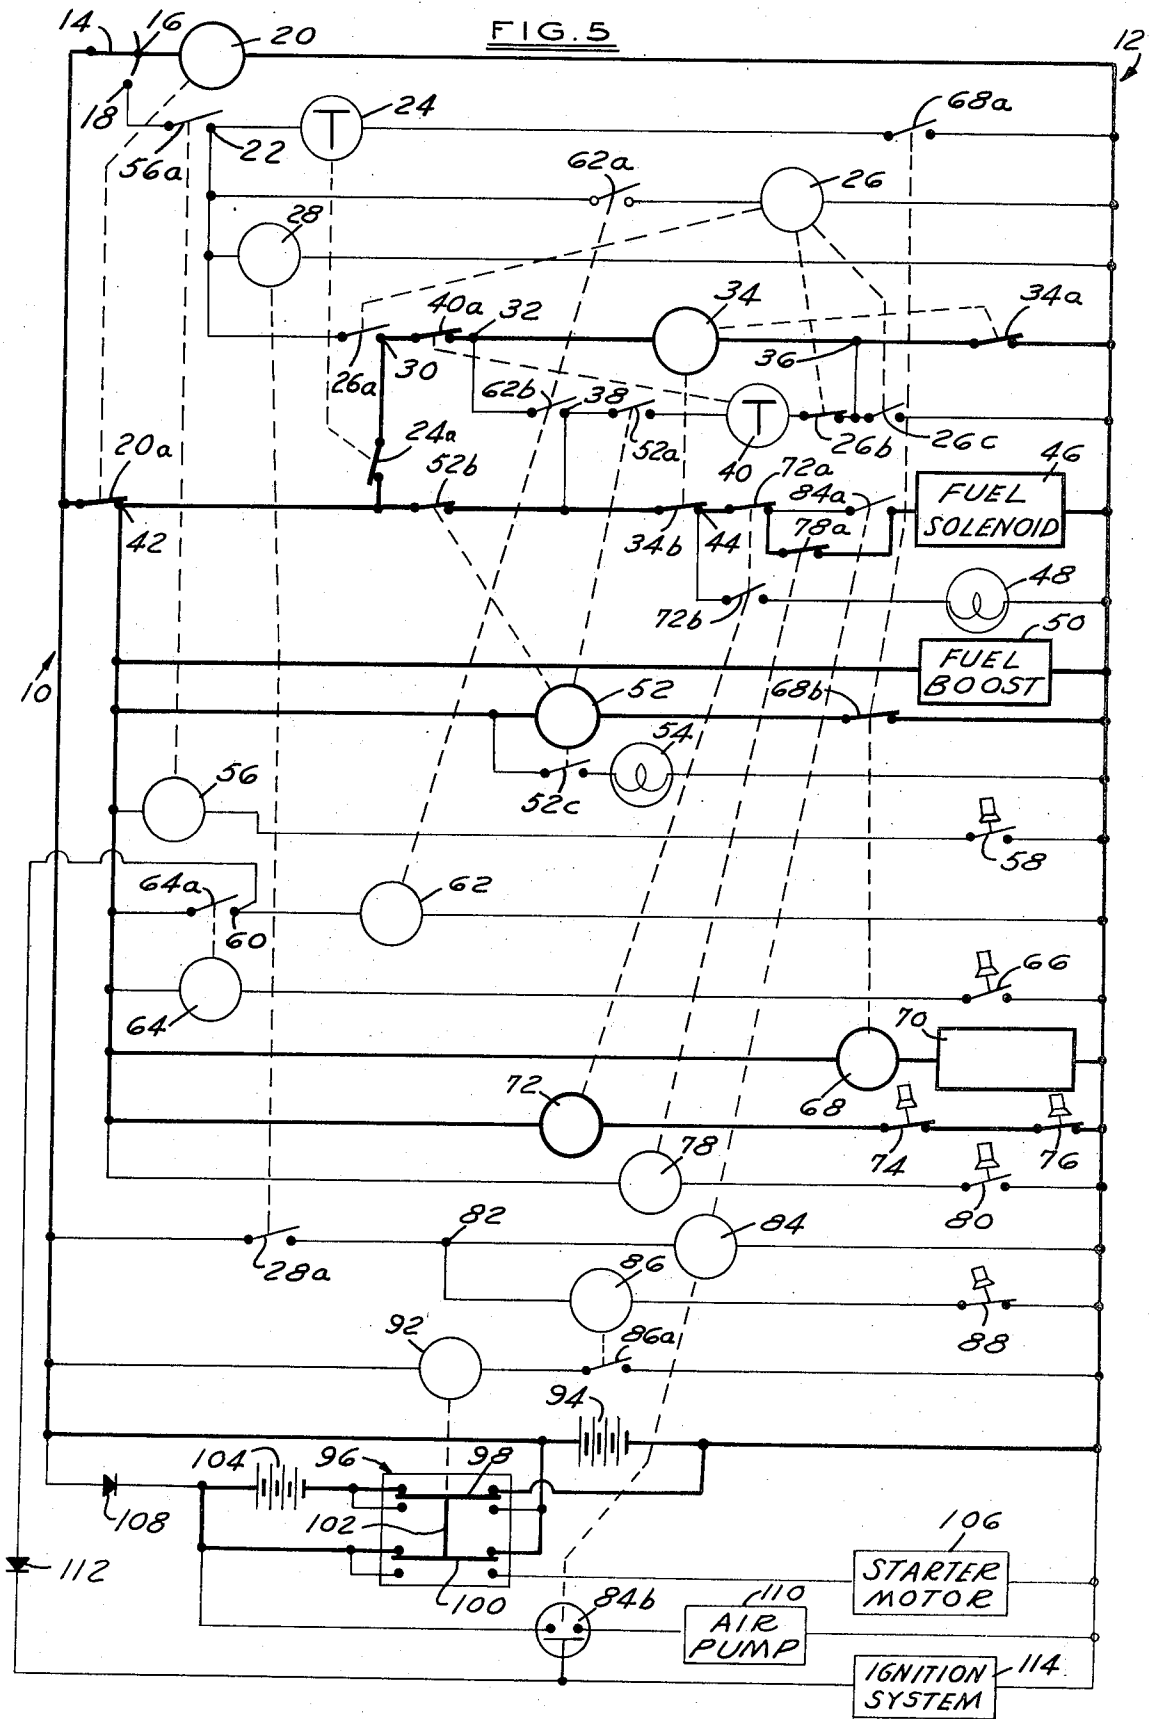 FIG. 5
14
16
20
12
18
56a
22
T
24
68a
62a
26
28
40a
32
34
34a
26a
30
36
62b
38
52a
T
40
26b
26c
20a
24a
52b
72a
84a
46
FUEL
SOLENOID
42
34b
44
78a
48
72b
50
FUEL
BOOST
10
52
68b
54
52c
56
58
64a
60
62
66
64
70
68
72
74
76
78
80
82
84
28a
86
88
92
86a
94
104
96
98
108
102
106
STARTER
MOTOR
112
100
84b
110
AIR
PUMP
IGNITION
SYSTEM
114